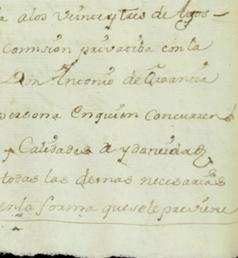 a a los Veinte y tres de Agos-
Comision privativa con la
Don Antonio de
persona en quien Concurren
y Calidades de ydoneidad
todas las demas necesarias
en la forma que se le previene